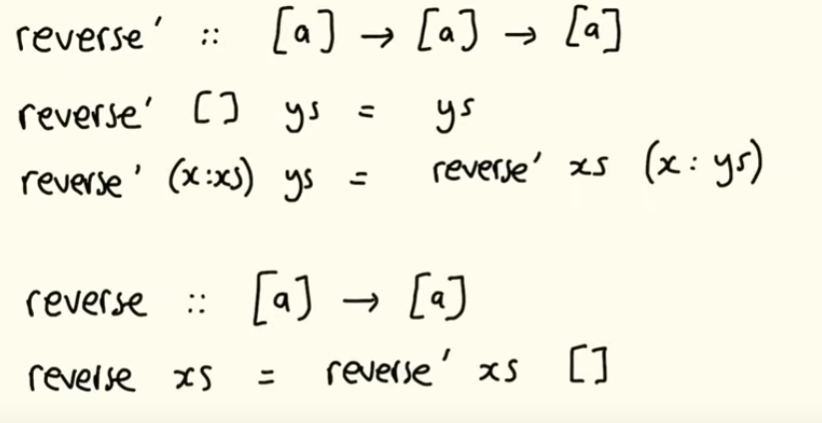 reverse' :: [a] → [a] → [a]
reverse' [] ys = ys
reverse' (x:xs) ys = reverse' xs (x: ys)
reverse :: [a] → [a]
reverse xs = reverse' xs []